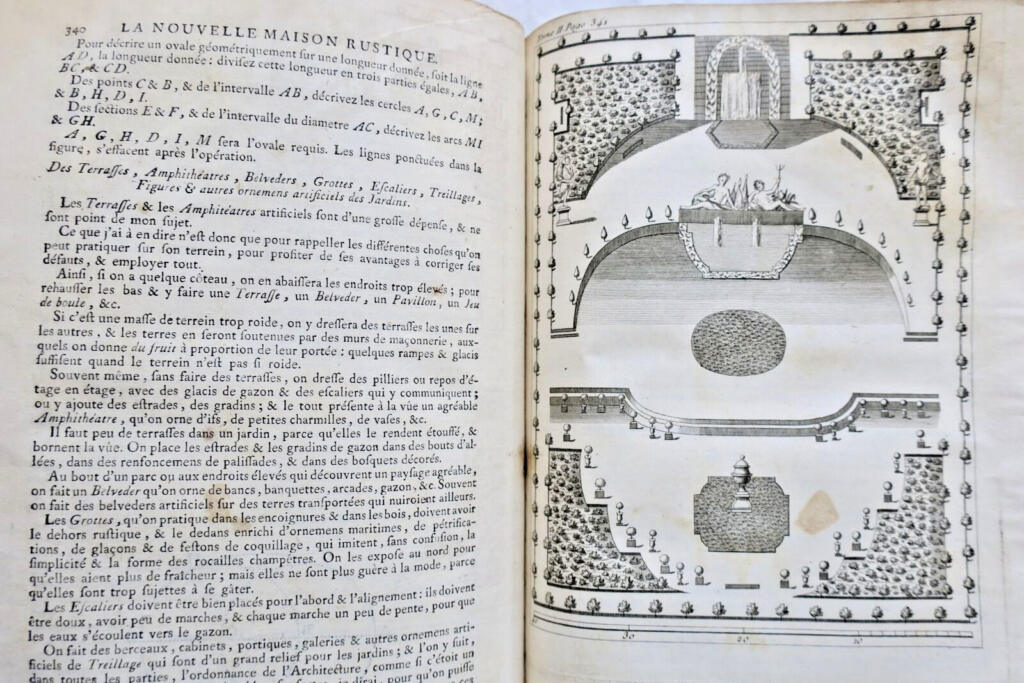 340 LA NOUVELLE MAISON RUSTIQUE.
Pour décrire un ovale géométriquement sur une longueur donnée, soit la ligne
AD, la longueur donnée : divisez cette longueur en trois parties égales, AB,
BC, & CD.
Des points C & B, & de l'intervalle AB, décrivez les cercles A, G, C, M;
& B, H, D, I.
Des sections E & F, & de l'intervalle du diametre AC, décrivez les arcs MI
& GH.
A, G, H, D, I, M sera l'ovale requis. Les lignes ponctuées dans la
figure, s'effacent après l'opération.
Des Terrasses, Amphithéatres, Belveders, Grottes, Escaliers, Treillages,
Figures & autres ornemens artificiels des Jardins.
Les Terrasses & les Amphitéatres artificiels sont d'une grosse dépense, & ne
sont point de mon sujet.
Ce que j'ai à en dire n'est donc que pour rappeller les différentes choses qu'on
peut pratiquer sur son terrein, pour profiter de ses avantages à corriger ses
défauts, & employer tout.
Ainsi, si on a quelque côteau, on en abaissera les endroits trop élevés; pour
rehausser les bas & y faire une Terrasse, un Belveder, un Pavillon, un Jeu
de boule, &c.
Si c'est une masse de terrein trop roide, on y dressera des terrasses les unes sur
les autres, & les terres en seront soutenues par des murs de maçonnerie, aux-
quels on donne du fruit à proportion de leur portée : quelques rampes & glacis
suffisent quand le terrein n'est pas si roide.
Souvent même, sans faire des terrasses, on dresse des pilliers ou repos d'é-
tage en étage, avec des glacis de gazon & des escaliers qui y communiquent;
ou y ajoute des estrades, des gradins; & le tout présente à la vûe un agréable
Amphithéatre, qu'on orne d'ifs, de petites charmilles, de vases, &c.
Il faut peu de terrasses dans un jardin, parce qu'elles le rendent étouffé, &
bornent la vûe. On place les estrades & les gradins de gazon dans des bouts d'al-
lées, dans des renfoncemens de palissades, & dans des bosquets décorés.
Au bout d'un parc ou aux endroits élevés qui découvrent un paysage agréable,
on fait un Belveder qu'on orne de bancs, banquettes, arcades, gazon, &c. Souvent
on fait des belveders artificiels sur des terres transportées qui nuiroient ailleurs.
Les Grottes, qu'on pratique dans les encoignures & dans les bois, doivent avoir
le dehors rustique, & le dedans enrichi d'ornemens maritimes, de pétrifica-
tions, de glaçons & de festons de coquillage, qui imitent, sans confusion, la
simplicité & la forme des rocailles champêtres. On les expose au nord pour
qu'elles aient plus de fraîcheur; mais elles ne sont plus guère à la mode, parce
qu'elles sont trop sujettes à se gâter.
Les Escaliers doivent être bien placés pour l'abord & l'alignement : ils doivent
être doux, avoir peu de marches, & chaque marche un peu de pente, pour que
les eaux s'écoulent vers le gazon.
On fait des berceaux, cabinets, portiques, galeries & autres ornemens arti-
ficiels de Treillage qui sont d'un grand relief pour les jardins; & l'on y suit,
dans toutes les parties, l'ordonnance de l'Architecture, comme si c'étoit un
pour qu'on puisse
Tome II. Page 341